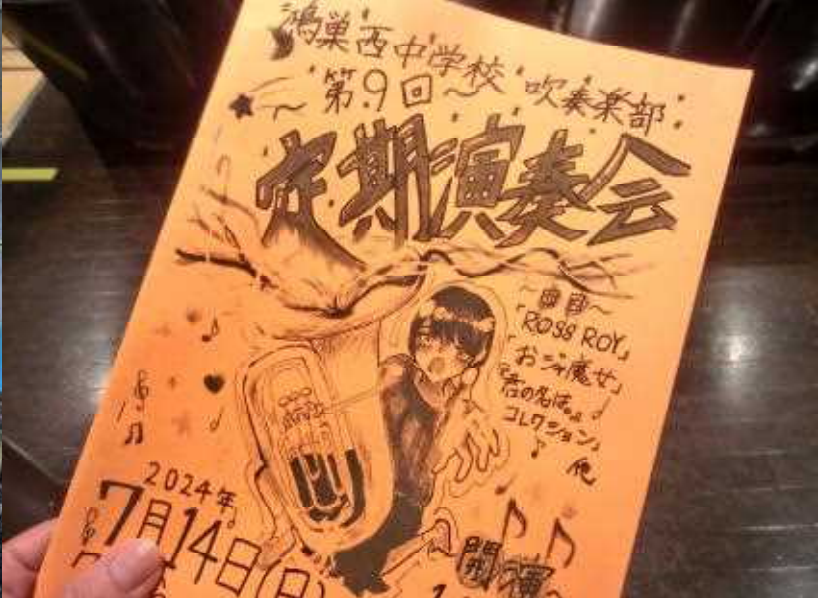 鴻巣西中学校 吹奏楽部
～第9回～
定期演奏会
～曲目～
「ROSS ROY」
「おジャ魔女」
「君の名は。
コレクション」
他
2024年
7月14日(日)
～開演～